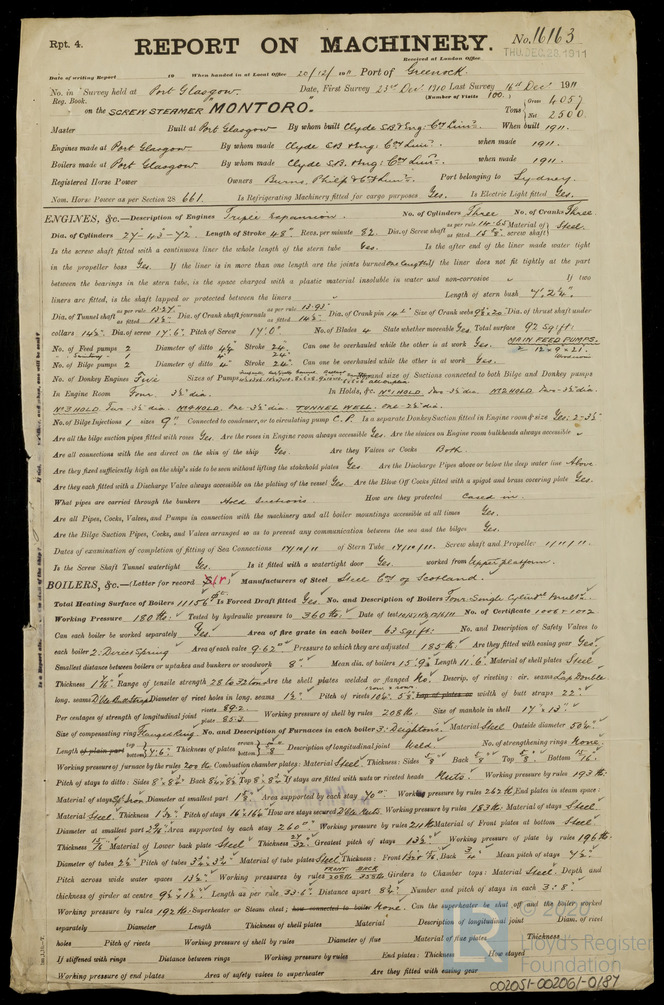 Rpt. 4.
REPORT ON MACHINERY.
No. 16163
THU. DEC. 28, 1911
Received at London Office
Date of writing Report 19 When handed in at Local Office 20/12/1911 Port of Greenock.
No. in Survey held at Port Glasgow. Date, First Survey 23rd Decr 1910 Last Survey 16th Decr 1911
Reg. Book. (Number of Visits 100.)
on the SCREW STEAMER "MONTORO." Tons Gross 4057 Net 2500
Master Built at Port Glasgow By whom built Clyde S.B. & Eng. Coy Limd. When built 1911.
Engines made at Port Glasgow. By whom made Clyde S.B. & Eng. Coy Limd. when made 1911.
Boilers made at Port Glasgow By whom made Clyde S.B. & Eng. Coy Limd. when made 1911.
Registered Horse Power Owners Burns, Philp & Co Limd. Port belonging to Sydney.
Nom. Horse Power as per Section 28 661. Is Refrigerating Machinery fitted for cargo purposes Yes. Is Electric Light fitted Yes.
ENGINES, &c.—Description of Engines Triple Expansion. No. of Cylinders Three No. of Cranks Three
Dia. of Cylinders 27-43-72 Length of Stroke 48" Revs. per minute 82. Dia. of Screw shaft as per rule 14.65 as fitted 15 Material of screw shaft Steel.
Is the screw shaft fitted with a continuous liner the whole length of the stern tube Yes. Is the after end of the liner made water tight
in the propeller boss Yes. If the liner is in more than one length are the joints burned one length If the liner does not fit tightly at the part
between the bearings in the stern tube, is the space charged with a plastic material insoluble in water and non-corrosive If two
liners are fitted, is the shaft lapped or protected between the liners Length of stern bush
Dia. of Tunnel shaft as per rule 13.27 as fitted Dia. of Crank shaft journals as per rule 13.93 as fitted Dia. of Crank pin Size of Crank webs Dia. of thrust shaft under
collars Dia. of screw 17'.6" Pitch of Screw 17'.6" No. of Blades 4 State whether moveable Yes. Total surface 92 sq. ft.
No. of Feed pumps 2 Diameter of ditto Stroke 24" Can one be overhauled while the other is at work Yes. MAIN FEED PUMPS.
No. of Bilge pumps 2 Diameter of ditto Stroke 24" Can one be overhauled while the other is at work Yes.
No. of Donkey Engines Five Sizes of Pumps No. and size of Suctions connected to both Bilge and Donkey pumps
In Engine Room Four. 3½" dia. In Holds, &c. No 1 HOLD. Two-3½" dia. No 2 HOLD. Two-3½" dia.
No 3 HOLD. Two-3½" dia. No 4 HOLD. One-3½" dia. TUNNEL WELL. One-
No. of Bilge Injections 1 sizes 9" Connected to condenser, or to circulating pump C.P. Is a separate Donkey Suction fitted in Engine room & size Yes. 2-3½
Are all the bilge suction pipes fitted with roses Yes. Are the roses in Engine room always accessible Yes. Are the sluices on Engine room bulkheads always accessible
Are all connections with the sea direct on the skin of the ship Yes. Are they Valves or Cocks Both.
Are they fixed sufficiently high on the ship's side to be seen without lifting the stokehold plates Yes Are the Discharge Pipes above or below the deep water line Above
Are they each fitted with a Discharge Valve always accessible on the plating of the vessel Yes. Are the Blow Off Cocks fitted with a spigot and brass covering plate Yes.
What pipes are carried through the bunkers Hold Suctions. How are they protected Cased in.
Are all Pipes, Cocks, Valves, and Pumps in connection with the machinery and all boiler mountings accessible at all times Yes.
Are the Bilge Suction Pipes, Cocks, and Valves arranged so as to prevent any communication between the sea and the bilges Yes.
Dates of examination of completion of fitting of Sea Connections 17/10/11 of Stern Tube 17/10/11. Screw shaft and Propeller 1/11/11.
Is the Screw Shaft Tunnel watertight Yes. Is it fitted with a watertight door Yes. worked from Upper platform.
BOILERS, &c.—(Letter for record (S) (r) Manufacturers of Steel Steel Coy of Scotland.
Total Heating Surface of Boilers 11156 Is Forced Draft fitted Yes. No. and Description of Boilers Four Single
Working Pressure 180 lb. Tested by hydraulic pressure to 360 lb. Date of test No. of Certificate 1006 & 1007
Can each boiler be worked separately Yes. Area of fire grate in each boiler 63 sq. ft. No. and Description of Safety Valves to
each boiler 2. Direct Spring Area of each valve 9.62" Pressure to which they are adjusted 185 lb. Are they fitted with easing gear Yes
Smallest distance between boilers or uptakes and bunkers or woodwork 8" Mean dia. of boilers 15'.9" Length 11'.6" Material of shell plates Steel
Thickness Range of tensile strength 28 to 32 tons Are the shell plates welded or flanged No. Descrip. of riveting: cir. seams Lap Double
long. seams Dble Butt Straps Diameter of rivet holes in long. seams Pitch of rivets Lap of plates or width of butt straps 22"
Per centages of strength of longitudinal joint rivets 89.2 plate 85.3 Working pressure of shell by rules 208 lb. Size of manhole in shell 17" x 13"
Size of compensating ring Flanged Ring. No. and Description of Furnaces in each boiler 3. Deightons. Material Steel Outside diameter
Length of plain part top bottom Thickness of plates crown bottom Description of longitudinal joint Weld. No. of strengthening rings None
Working pressure of furnace by the rules Combustion chamber plates: Material Steel Thickness: Sides Back Top Bottom
Pitch of stays to ditto: Sides Back Top If stays are fitted with nuts or riveted heads Nuts. Working pressure by rules 193 lb.
Material of stays Diameter at smallest part Area supported by each stay 70" Working pressure by rules 262 lb. End plates in steam space:
Material Steel. Thickness Pitch of stays How are stays secured Dble Nuts. Working pressure by rules 183 lb. Material of stays Steel.
Diameter at smallest part Area supported by each stay 260" Working pressure by rules 211 lb. Material of Front plates at bottom Steel
Thickness Material of Lower back plate Steel Thickness Greatest pitch of stays Working pressure of plate by rules 196 lb.
Diameter of tubes Pitch of tubes Material of tube plates Steel Thickness: Front Back Mean pitch of stays
Pitch across wide water spaces Working pressures by rules FRONT BACK Girders to Chamber tops: Material Steel. Depth and
thickness of girder at centre Length as per rule 33.6" Distance apart Number and pitch of stays in each 3: 8"
Working pressure by rules 192 lb. Superheater or Steam chest; how connected to boiler None. Can the superheater be shut off and the boiler worked
separately Diameter Length Thickness of shell plates Material Description of longitudinal joint Diam. of rivet
holes Pitch of rivets Working pressure of shell by rules Diameter of flue Material of flue plates Thickness
If stiffened with rings Distance between rings Working pressure by rules End plates: Thickness How stayed
Working pressure of end plates Area of safety valves to superheater Are they fitted with easing gear
© 2020
Lloyd's Register
Foundation
002051-002061-0187